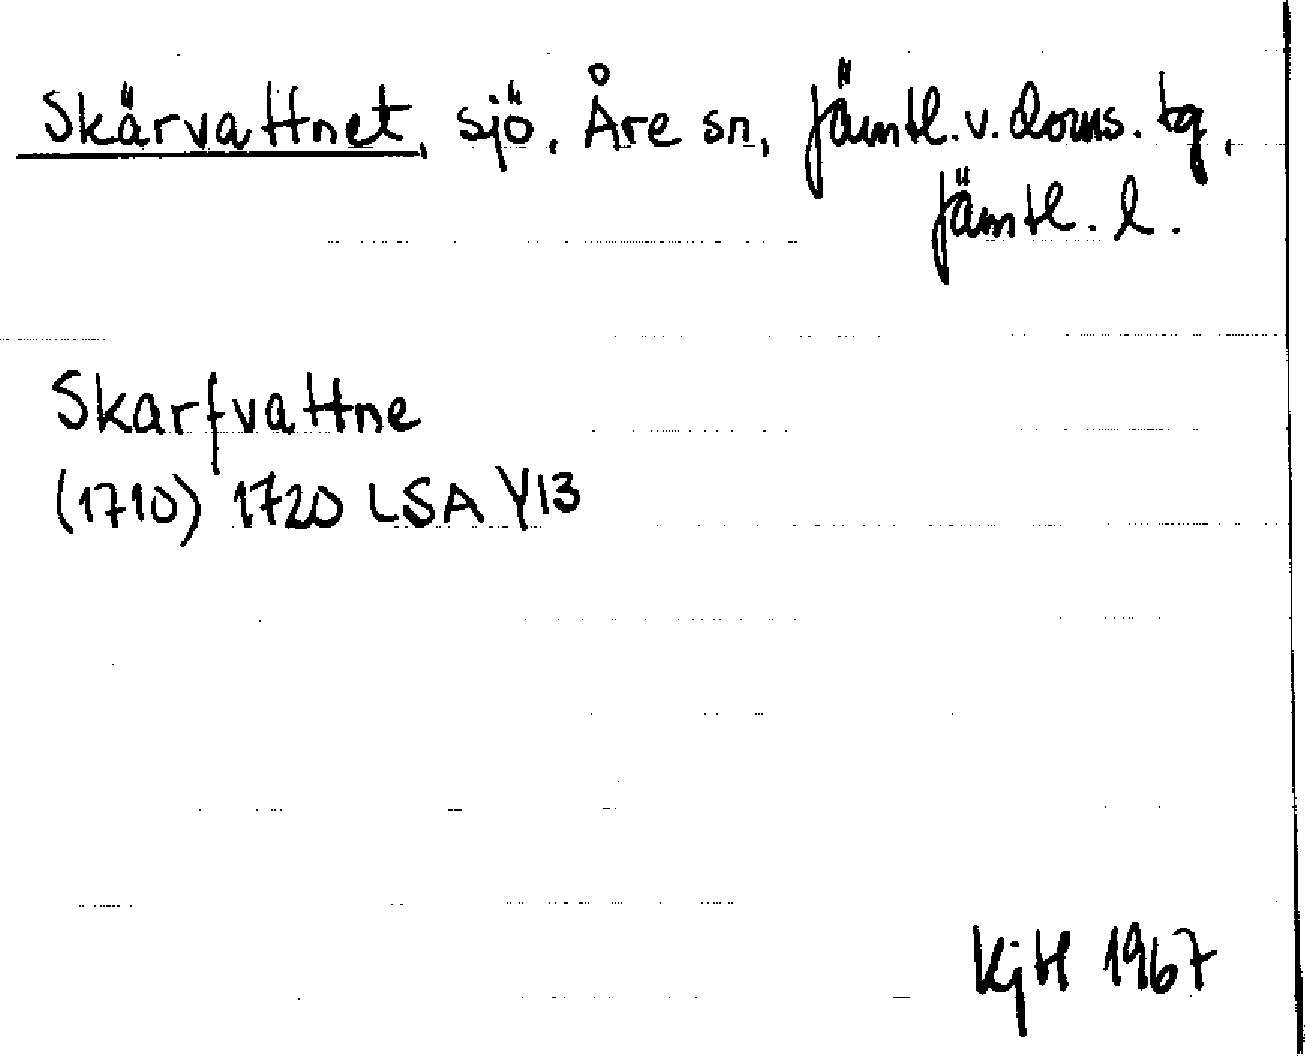 Skärvattnet, sjö. Åre sn, Jämtl. v. doms. tg,
Jämtl. l.
Skarfvattne
(1710) 1720 LSA Y13
KjH 1967